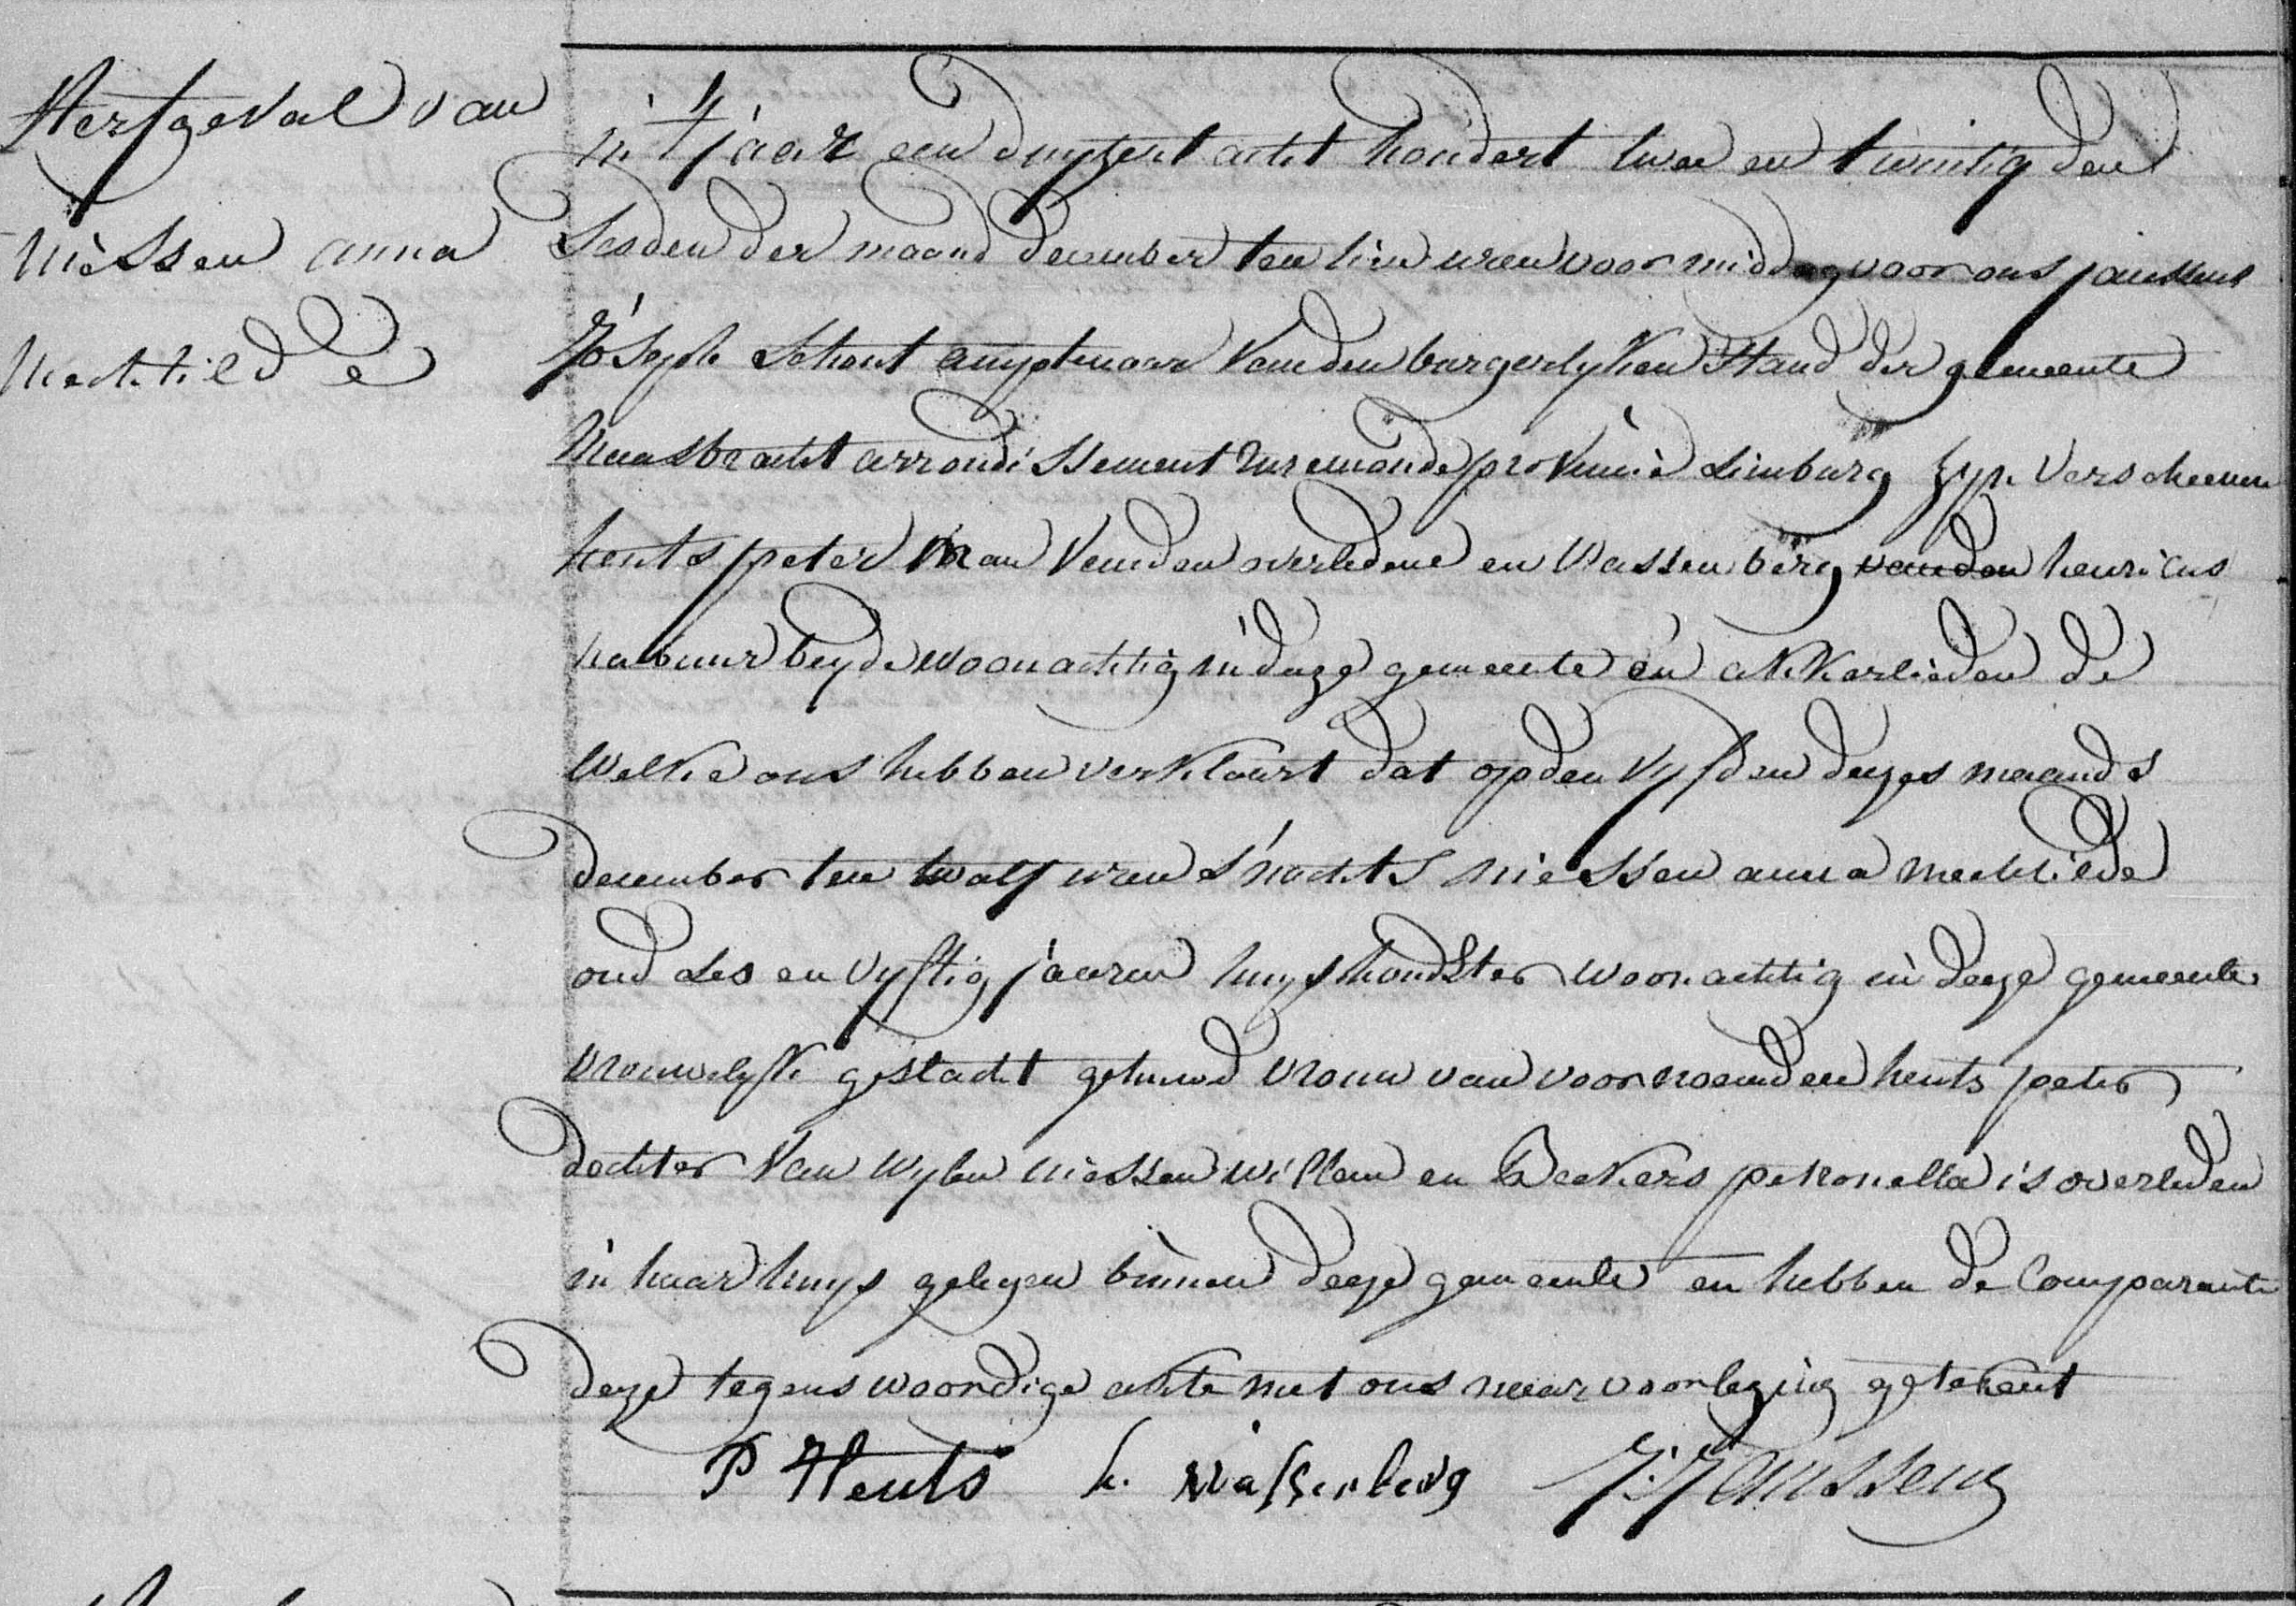 Sterfgeval van
niessen anna
mechtilde
in 't jaar een duyzent acht hondert twee en twintig den
Sesden der maand december ten tien uren voor middag voor ons janssens
Joseph Schout amptenaar van den burgerlyken Stand der gemeente
Maasbracht arrondissement Ruremonde provincie Limburg zyn verscheenen
heuts peter man van den overledene en Wassenberg henricus
nabuur beyde woonachtig in deeze gemeente en akkerlieden de
welke ons hebben verklaart dat op den vyfden dezes maands
December ten twalf uren s'nachts niessen anna mechtilde
oud ses en vyftig jaaren huyshoudster woonachtig in deeze gemeente
vrouwelyk geslacht gehuwd vrouw van voornoemden heuts peter
dochter van wylen niessen willem en Beckers petronella is overleden
in haar huys gelegen binnen deeze gemeente en hebben de Comparante
deze tegenswoordige akte met ons naar voorlezing getekent
P Heuts h. Wassenberg J: Janssens